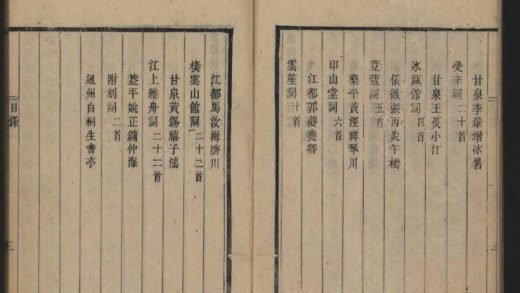 甘泉李肇增冰署
受辛詞二十首
甘泉王菼小汀
冰甌館詞四首
儀徵張丙炎午橋
荳蔻詞五首
黃涇祥琴川
印山堂詞六首
江都郭夔堯卿
雲笙詞十首
江都馬汝楫濟川
棲雲山館詞二十二首
甘泉黃錫禧子鴻
江上維舟詞二十二首
姚正鏞仲海
附刻詞二首
通州白桐生書亭
目錄